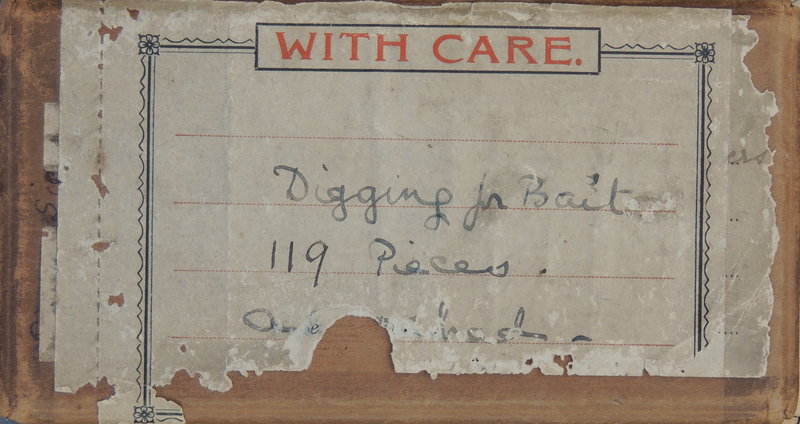 WITH CARE.
Digging for Bait
119 Pieces.